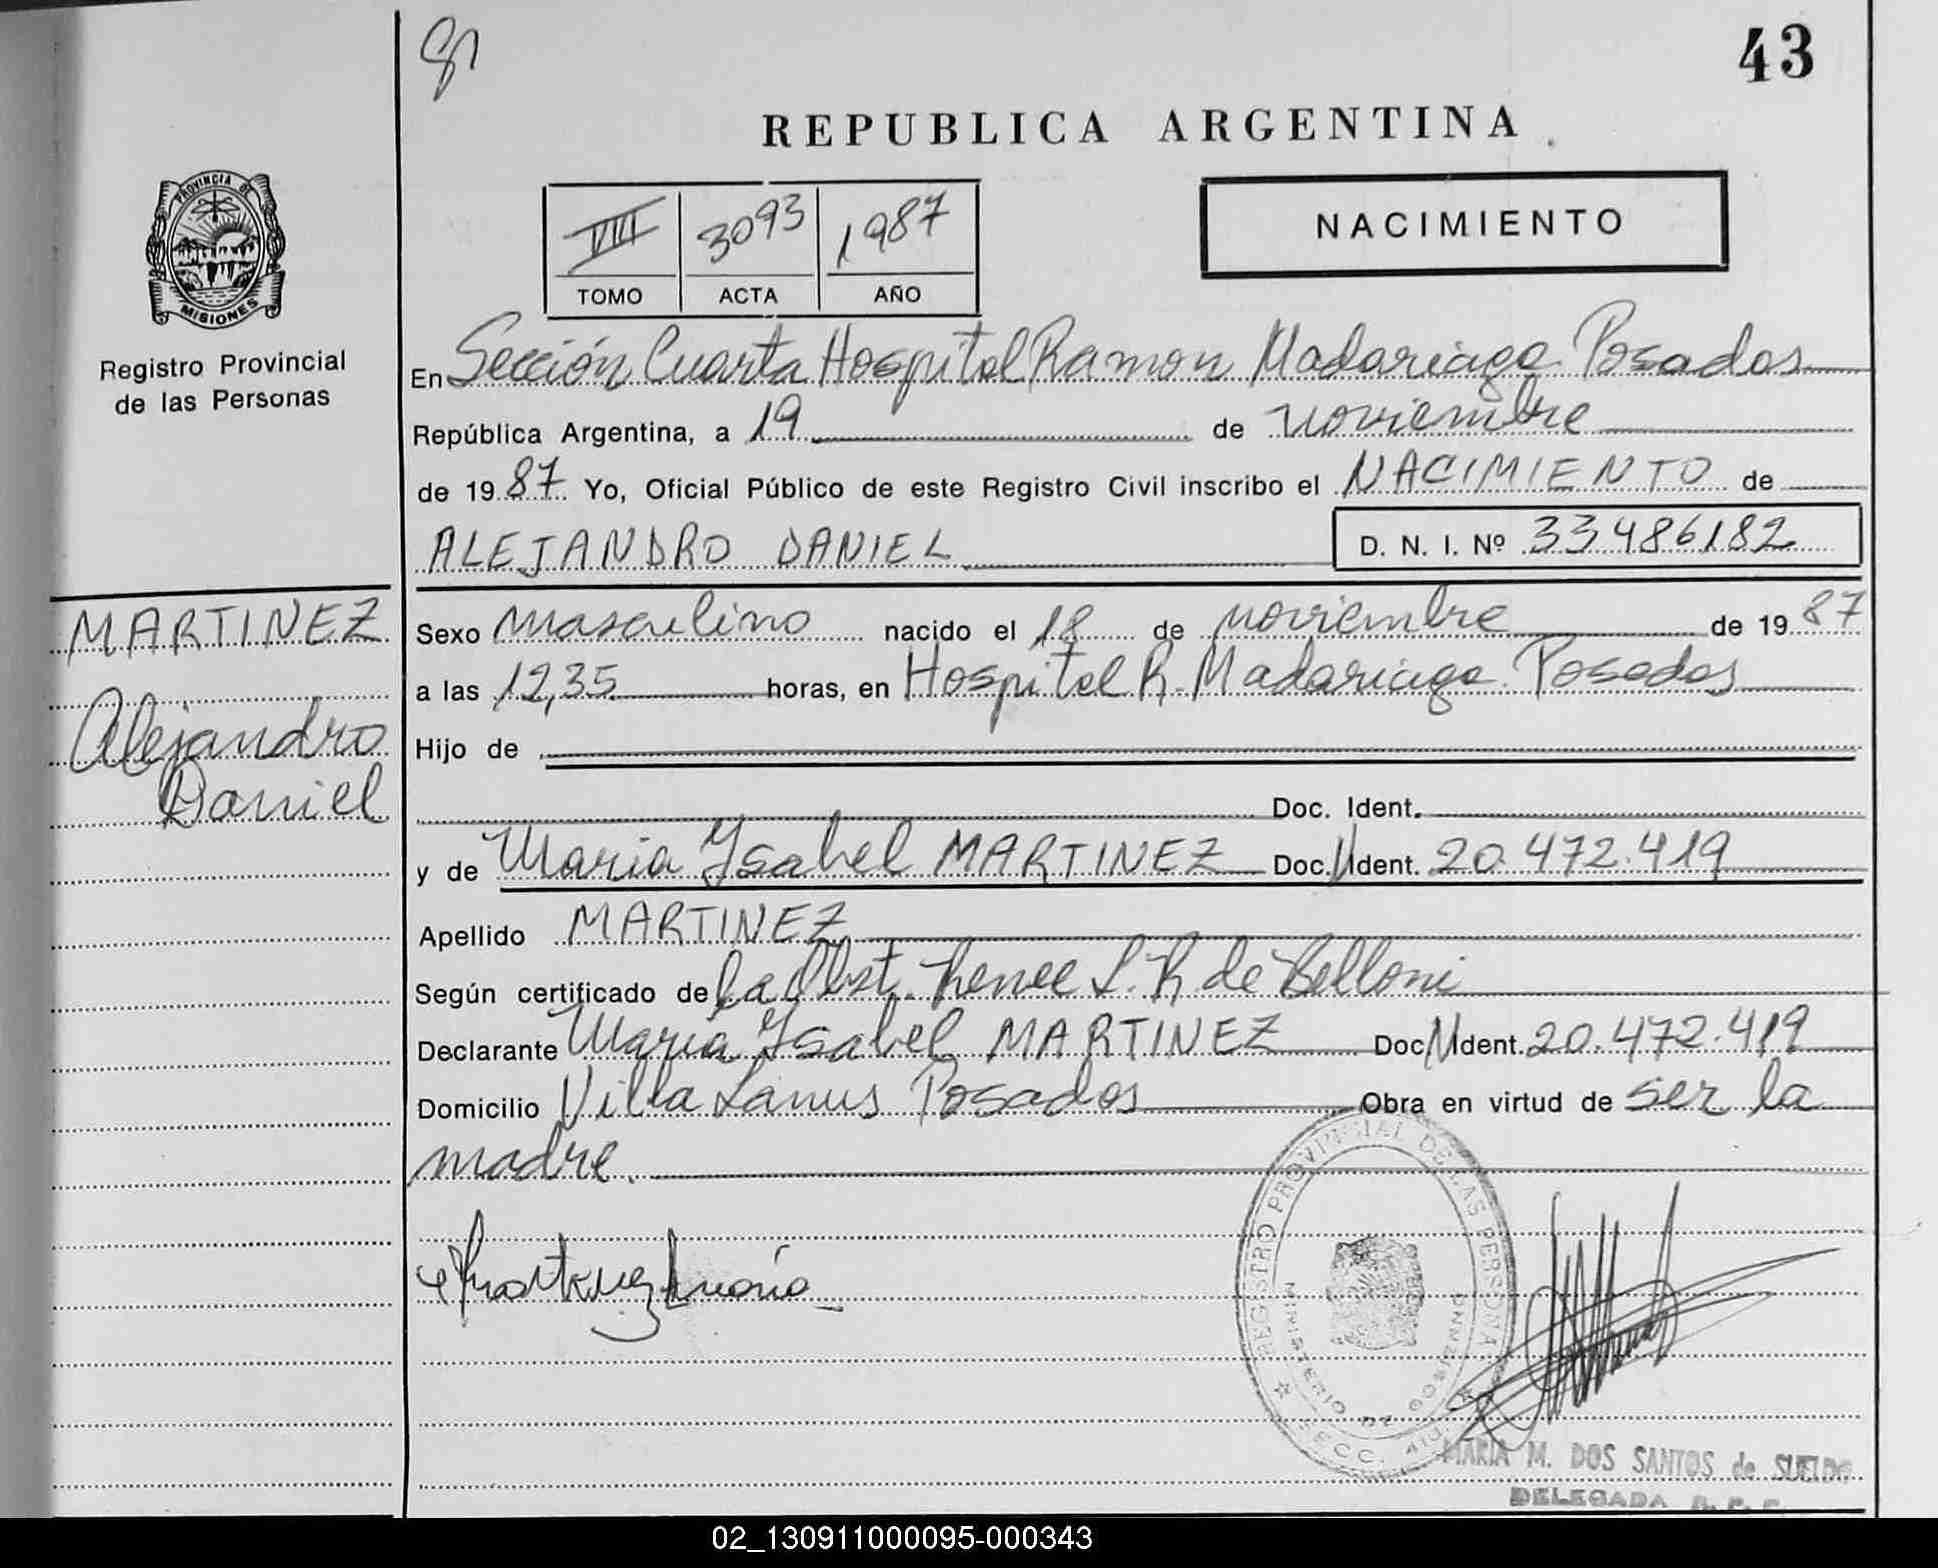 43
REPUBLICA ARGENTINA
PROVINCIA DE
MISIONES
Registro Provincial
de las Personas
VIII 3093 1987
TOMO ACTA AÑO
NACIMIENTO
En Sección Cuarta Hospital Ramon Madariaga Posadas
República Argentina, a 19 de noviembre
de 1987 Yo, Oficial Público de este Registro Civil inscribo el NACIMIENTO de
ALEJANDRO DANIEL D. N. I. Nº 33486182
MARTINEZ
Alejandro
Daniel
Sexo masculino nacido el 18 de noviembre de 1987
a las 12,35 horas, en Hospital R. Madariaga Posadas
Hijo de
Doc. Ident.
y de Maria Ysabel MARTINEZ Doc. Ident. 20.472.419
Apellido MARTINEZ
Según certificado de la Obst. Renee L. R de Belloni
Declarante Maria Ysabel MARTINEZ Doc. Ident. 20.472.419
Domicilio Villa Lanus Posadas Obra en virtud de ser la
madre.
Martinez Maria
REGISTRO PROVINCIAL DE LAS PERSONAS
MINISTERIO DE GOBIERNO
SECC. 4
MARIA M. DOS SANTOS de SUELDO
DELEGADA
02_130911000095-000343